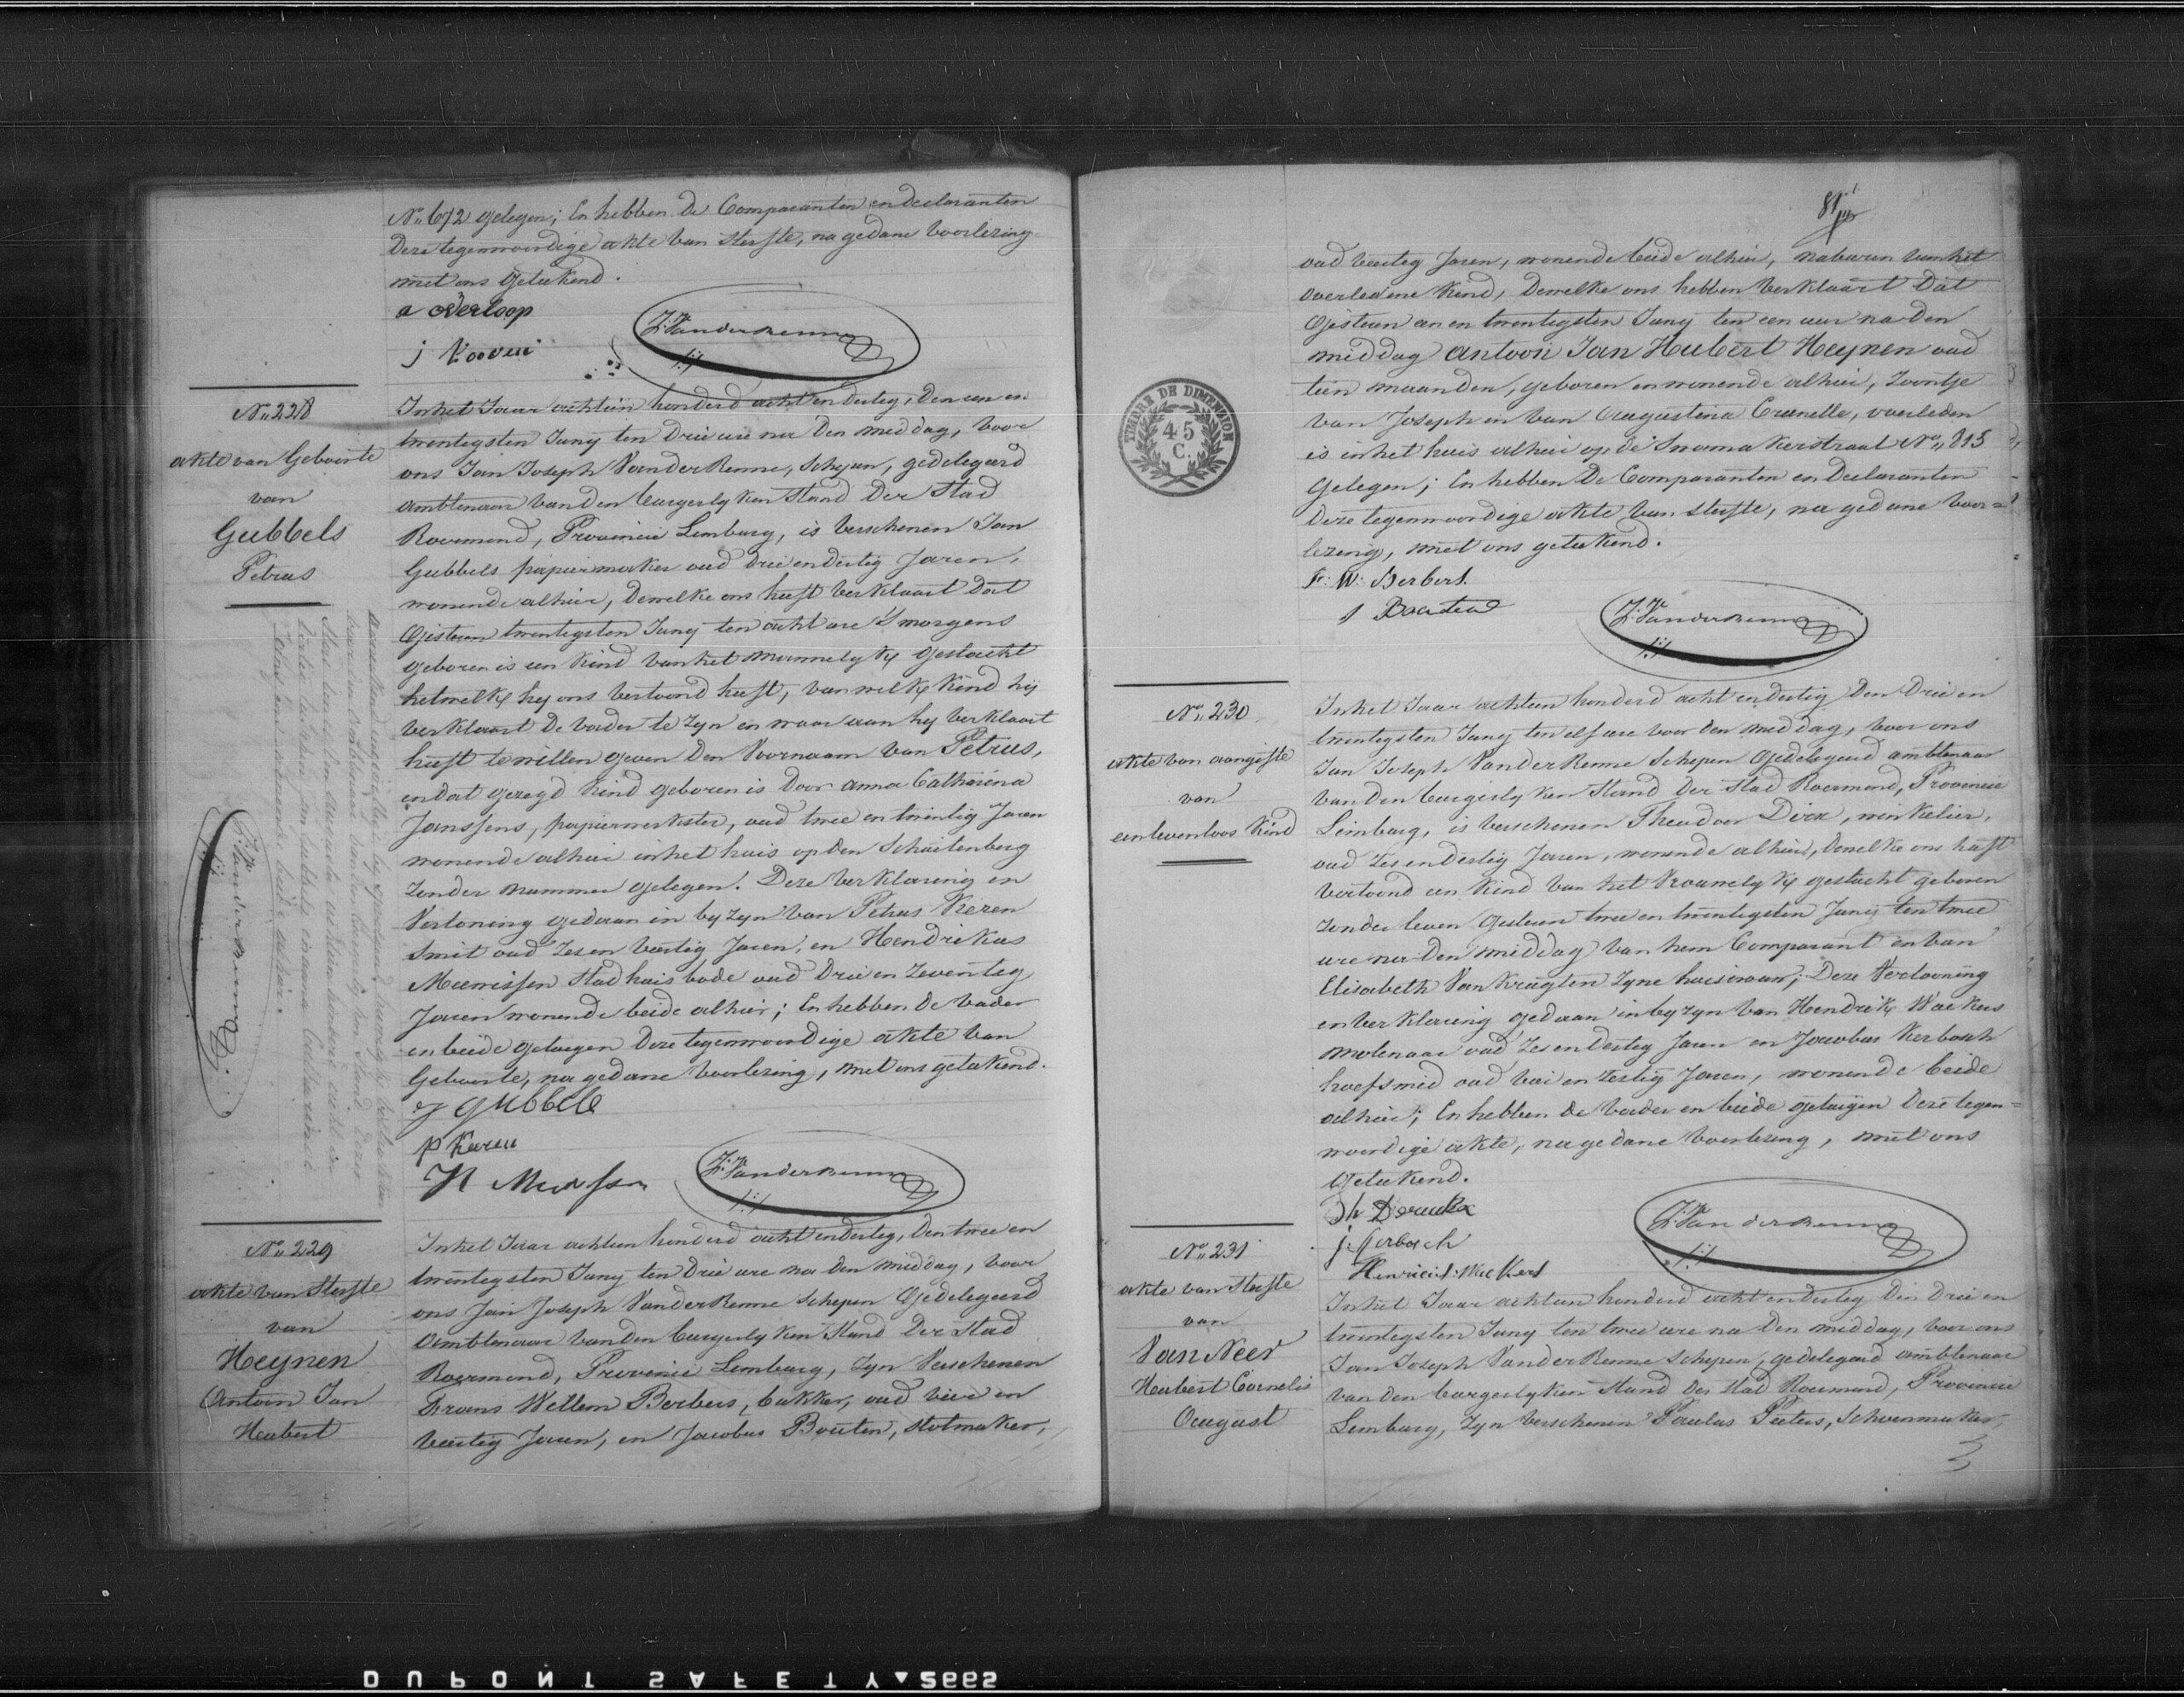 No 672 gelegen; En hebben de Comparanten en declaranten
Deze tegenwoordige akte van Sterfte, na gedane voorlezing
met ons geteekend.
a overloop
j
J: Vanderrenne
No 228
akte van Geboorte
van
Gubbels
Petrus
In het Jaar achtien honderd acht en dertig, den een en
twentigsten Juny ten drie ure na den middag, voor
ons Jan Joseph VanderRenne, Schepen, gedelegeerd
ambtenaar van den burgerlyken Stand der Stad
Roermond, Provincie Limburg, is verschenen Jan
Gubbels papiermaker oud drie en dertig Jaren,
wonende alhier, dewelke ons heeft verklaart dat
Gisteren twentigsten Juny ten acht ure 's morgens
geboren is een kind van het mannelyk geslacht
hetwelk hy ons vertoond heeft, van welk kind hij
verklaart de vader te zyn en waar aan hy verklaart
heeft te willen geven den Voornaam van Petrus,
en dat gezegd kind geboren is door anna Catharina
Janssens, papierwerkster, oud twee en twintig Jaren
wonende alhier in het huis op den
zonder nummer gelegen. Deze verklaring en
Vertoning gedaan in byzyn van Petrus Keren
Smit oud zes en veertig Jaren, en Hendrikus
Meuwissen Stadhuis bode oud drie en zeventig
Jaren wonende beide alhier; En hebben de vader
en beide getuigen deze tegenwoordige akte van
Geboorte, na gedane voorlezing, met ons geteekend.
J gubbels
p Keren
H
J: Vanderrenne
J: Vanderrenne
No 229
akte van Sterfte
van
Heynen
Antoon Jan
Hubert
In het Jaar achtien honderd acht en dertig, den twee en
twentigsten Juny ten drie ure na den middag, voor
ons Jan Joseph VanderRenne Schepen Gedelegeerd
Ambtenaar van den burgerlyken Stand der Stad
Roermond, Provincie Limburg, zyn Verschenen
Frans Willem Berbers, bakker, oud vier en
veertig Jaren, en Jacobus Bouten, slotmaker,
81
oud veertig Jaren, wonende beide alhier, naburen van het
overledene kind, dewelke ons hebben verklaart dat
Gisteren een en twentigsten Juny ten een uur na den
middag Antoon Jan Hubert Heynen oud
tien maanden, geboren en wonende alhier, zoontje
van Joseph en van Augustina Crunelle, overleden
is in het huis alhier op de Swamakerstraat No 815
Gelegen; En hebben de Comparanten en declaranten
deze tegenwoordige akte van sterfte, na gedane voor=
lezing, met ons geteekend.
Fr: W: Berbers
J
J: Vanderrenne
TIMBRE DE DIMENSION
45
C.
No 230
akte van aangifte
van
een levenloos kind
In het Jaar achtien honderd acht en dertig den drie en
twentigsten Juny ten elf ure voor den middag, voor ons
Jan Joseph VanderRenne Schepen Gedelegeerd ambtenaar
van den burgerlyken Stand der Stad Roermond, Provincie
Limburg, is verschenen Theodoor Dirx, winkelier,
oud zes en dertig Jaren, wonende alhier, dewelke ons heeft
vertoond een kind van het Vrouwelyk geslacht geboren
zonder leven Gisteren twee en twentigsten Juny ten twee
ure na den middag van hem Comparant en van
Elisabeth Van Krugten zyne huisvrouw; Deze Vertooning
en verklaring gedaan in byzyn van Hendrik Wackers
molenaar oud zes en dertig Jaren en Jacobus Kerbosch
hoefsmid oud en zestig Jaren, wonende beide
alhier; En hebben de vader en beide getuigen deze tegen=
woordige akte, na gedane voorlezing, met ons
Geteekend.
Th
j: Kerbosch
Henricus Wackers
J: Vanderrenne
No 231
akte van Sterfte
van
Van Neer
Hubert Cornelis
August
In het Jaar achtien honderd acht en dertig den drie en
twentigsten Juny ten twee ure na den middag, voor ons
Jan Joseph VanderRenne Schepen, gedelegeerd ambtenaar
van den burgerlyken Stand der Stad Roermond, Provincie
Limburg, zyn verschenen Paulus Pieters, Schoenmaker,
DUPONT SAFETY